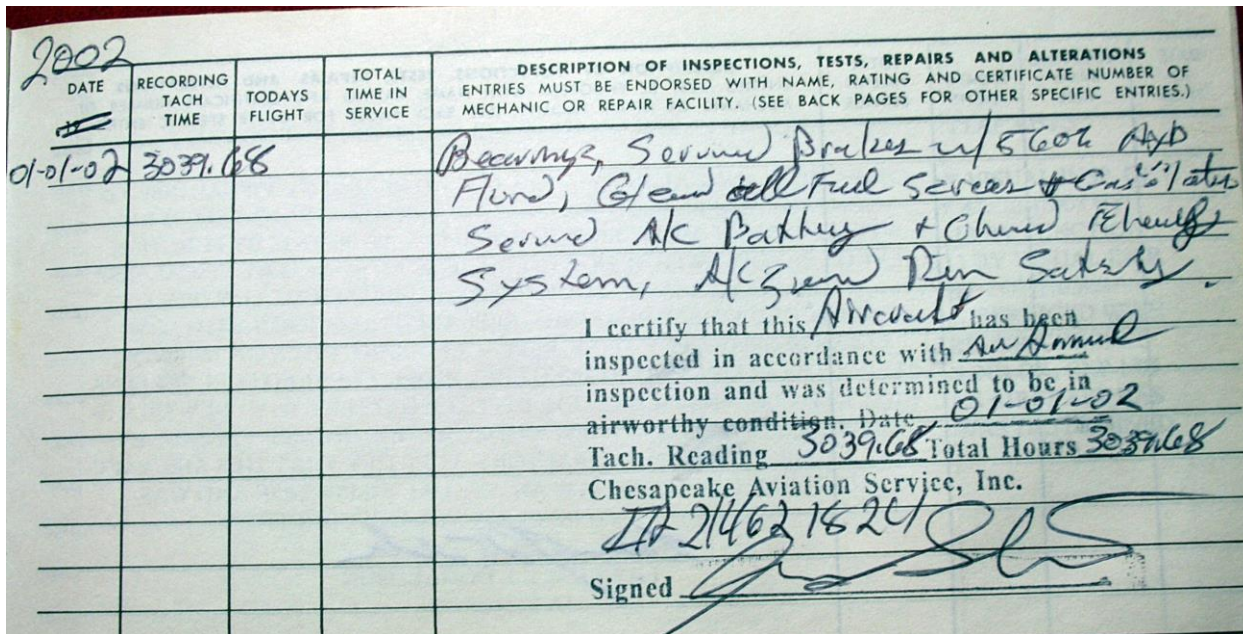 2002
DATE
RECORDING TACH TIME
TODAYS FLIGHT
TOTAL TIME IN SERVICE
DESCRIPTION OF INSPECTIONS, TESTS, REPAIRS AND ALTERATIONS
ENTRIES MUST BE ENDORSED WITH NAME, RATING AND CERTIFICATE NUMBER OF
MECHANIC OR REPAIR FACILITY. (SEE BACK PAGES FOR OTHER SPECIFIC ENTRIES.)
01-01-02 3039.68 Bearings, Serviced Brakes w/ 5606
Fluid, all Fuel
Serviced A/C Battery +
System, A/C Run
I certify that this Aircraft has been
inspected in accordance with An Annual
inspection and was determined to be in
airworthy condition. Date 01-01-02
Tach. Reading 3039.68 Total Hours 3039.68
Chesapeake Aviation Service, Inc.
214621824
Signed